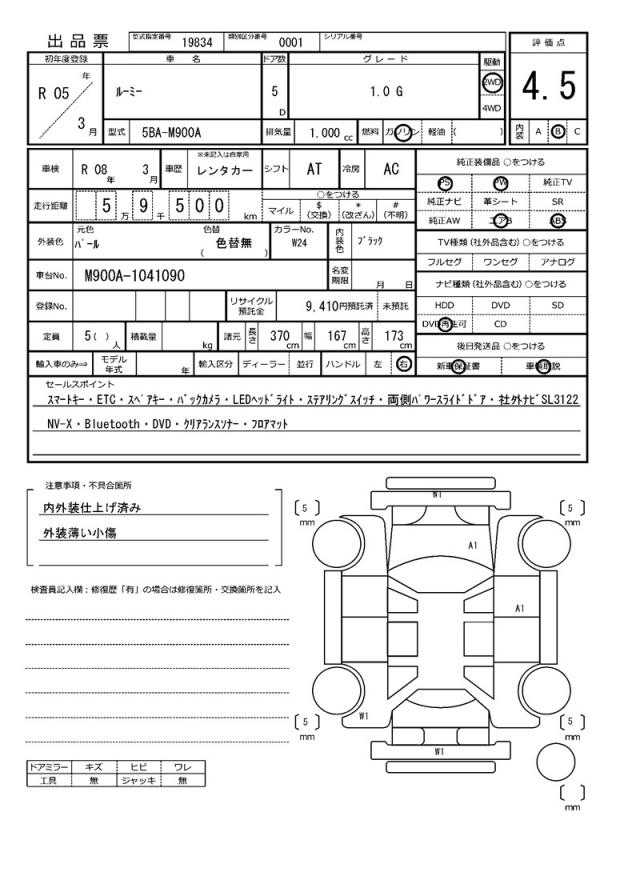 出品票 型式指定番号 19834 類別区分番号 0001 シリアル番号
評価点
4.5
内装 A B C
初年度登録 車名 ドア数 グレード 駆動
R 05 年 3 月 ルーミー 5 D 1.0 G 2WD 4WD
型式 5BA-M900A 排気量 1.000 cc 燃料 ガソリン 軽油 ( )
車検 R 08 年 3 月 車歴 ※未記入は自家用 レンタカー シフト AT 冷房 AC
走行距離 5 万 9 千 5 0 0 km ○をつける
マイル $ (交換) * (改ざん) # (不明)
外装色 元色 パール 色替 色替無 ( ) カラーNo. W24 内装色 ブラック
車台No. M900A-1041090 名変期限 月 日
登録No. リサイクル預託金 9,410円預託済 未預託
定員 5( ) 人 積載量 kg 諸元 長さ 370 cm 幅 167 cm 高さ 173 cm
輸入車のみ⇒ モデル年式 年 輸入区分 ディーラー 並行 ハンドル 左 右
純正装備品 ○をつける
PS PW 純正TV
純正ナビ 革シート SR
純正AW エアB ABS
TV種類(社外品含む) ○をつける
フルセグ ワンセグ アナログ
ナビ種類(社外品含む) ○をつける
HDD DVD SD
DVD再生可 CD
後日発送品 ○をつける
新車保証書 車輌取説
セールスポイント
スマートキー・ETC・スペアキー・バックカメラ・LEDヘッドライト・ステアリングスイッチ・両側パワースライドドア・社外ナビSL3122
NV-X・Bluetooth・DVD・クリアランスソナー・フロアマット
注意事項・不具合箇所
内外装仕上げ済み
外装薄い小傷
検査員記入欄:修復歴「有」の場合は修復箇所・交換箇所を記入
ドアミラー キズ ヒビ ワレ
工具 無 ジャッキ 無
W1
[ 5 ] mm
[ 5 ] mm
A1
A1
W1
[ 5 ] mm
[ 5 ] mm
W1
[ ] mm